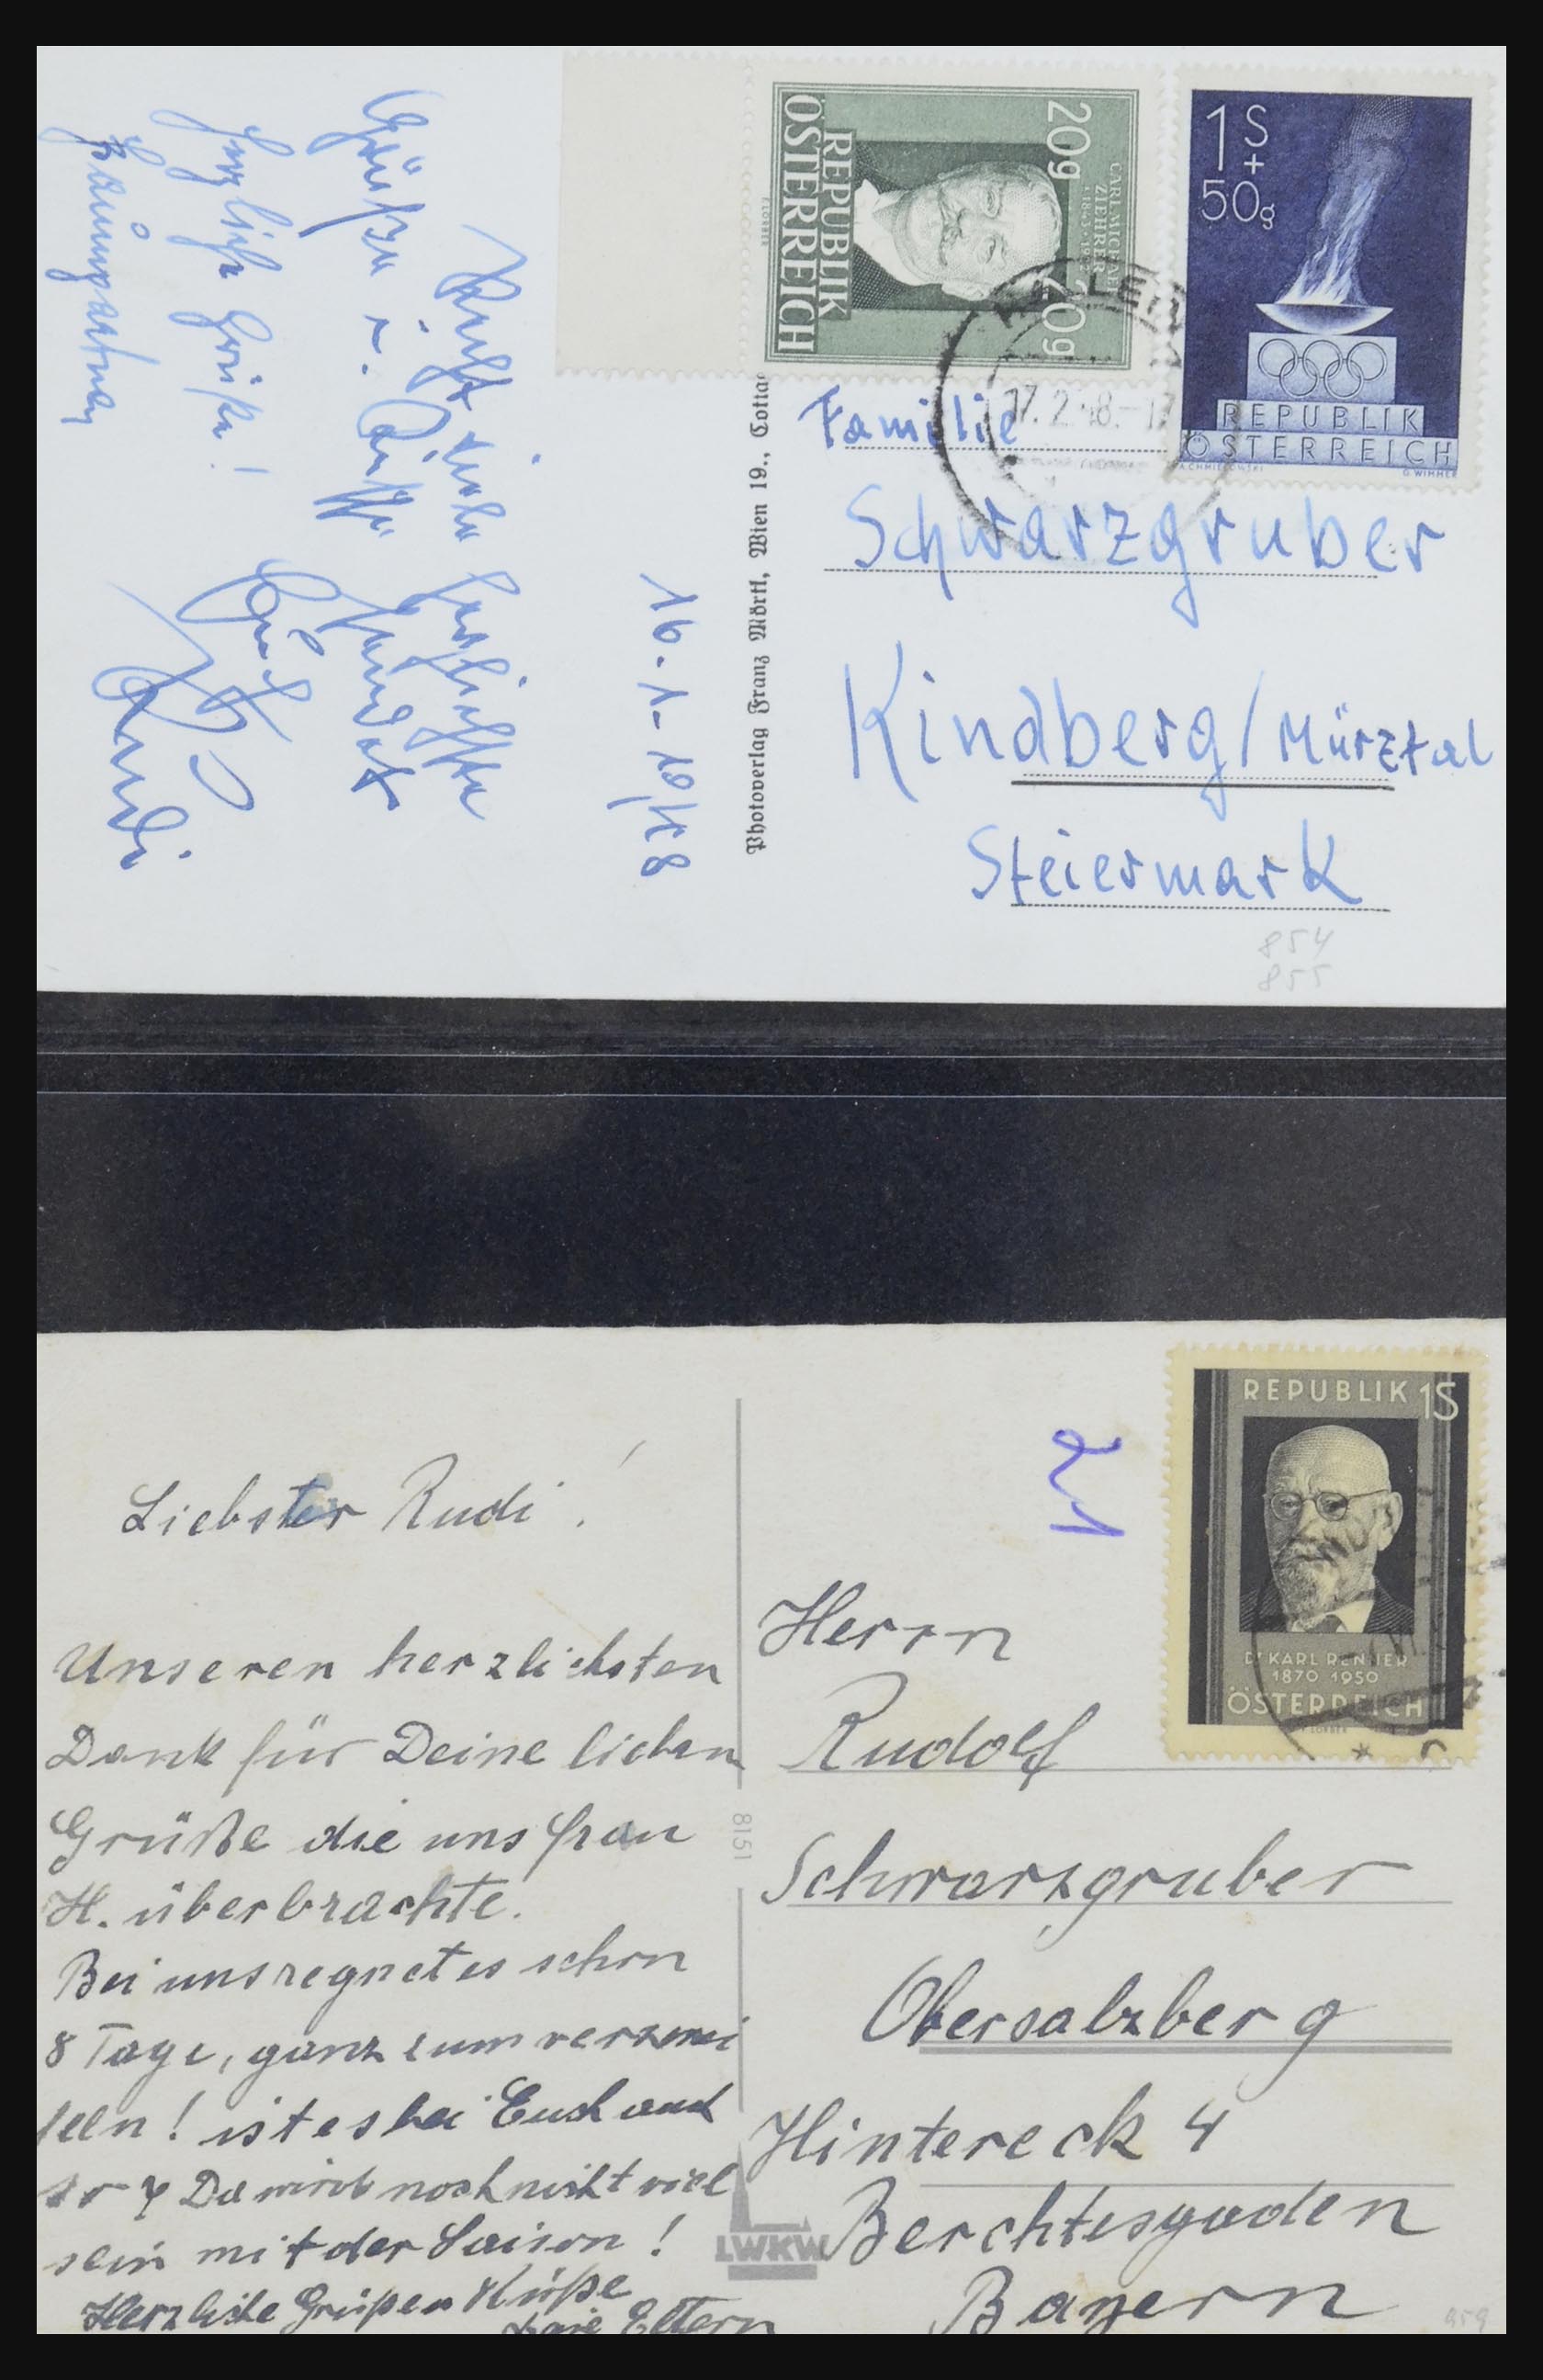 1S
+
50g
REPUBLIK
ÖSTERREICH
A. CHMIELOWSKI
G. WIMMER
20g 20g
CARL MICHAEL
ZIEHRER
REPUBLIK
ÖSTERREICH
HALLEIN
17.2.48.-17
Familie
Schwarzgruber
Kindberg/Mürztal
Steiermark
854
855
Photoverlag Franz Mörtl, Wien 19., Cotta
16.-1-10/48
Recht viele herzlichste
Grüße u.
Herzliche Grüße!
Rudi
REPUBLIK 1S
DR KARL RENNER
1870 1950
ÖSTERREICH
21
Liebster Rudi!
Unseren herzlichsten
Dank für Deine lieben
Grüße die uns Frau
H. überbrachte.
Bei uns regnet es schon
8 Tage, ganz zum verzwei
feln! ist es bei Euch auch
so? Da wird noch nicht viel
sein mit der Saison!
Herzliche Grüße u Küße
Eltern
8151
LWKW
Herrn
Rudolf
Schwarzgruber
Obersalzberg
Hintereck 4
Berchtesgaden
Bayern
959